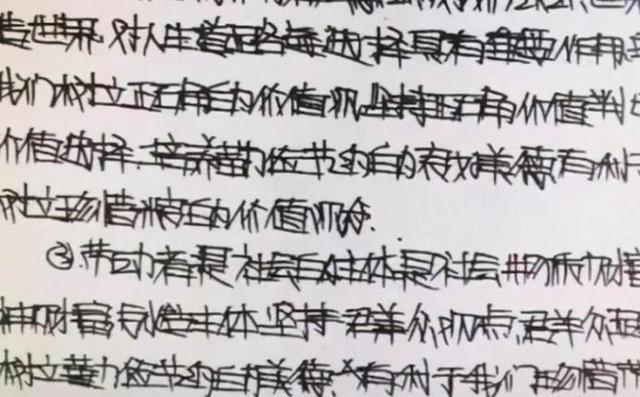 造世界,对人生道路的选择具有重要作用
我们树立正确的价值观,坚持正确的价值判
价值选择.培养勤俭节约的良好美德,有利于
树立珍惜粮食的价值观念.
③.劳动者是社会的主体,是社会物质财富
神财富创造主体.坚持群众观点,群众
树立勤俭节约的美德,有利于我们珍惜